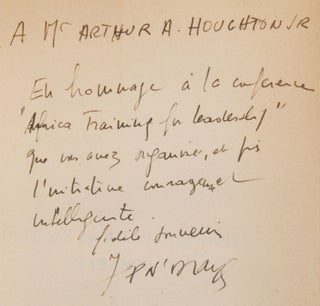 A Mr ARTHUR A. HOUGHTON JR
En hommage à la conference
"Africa Training for leadership"
que vous avez organisée, et
l'initiative courageuse et
intelligente.
fidèle souvenir